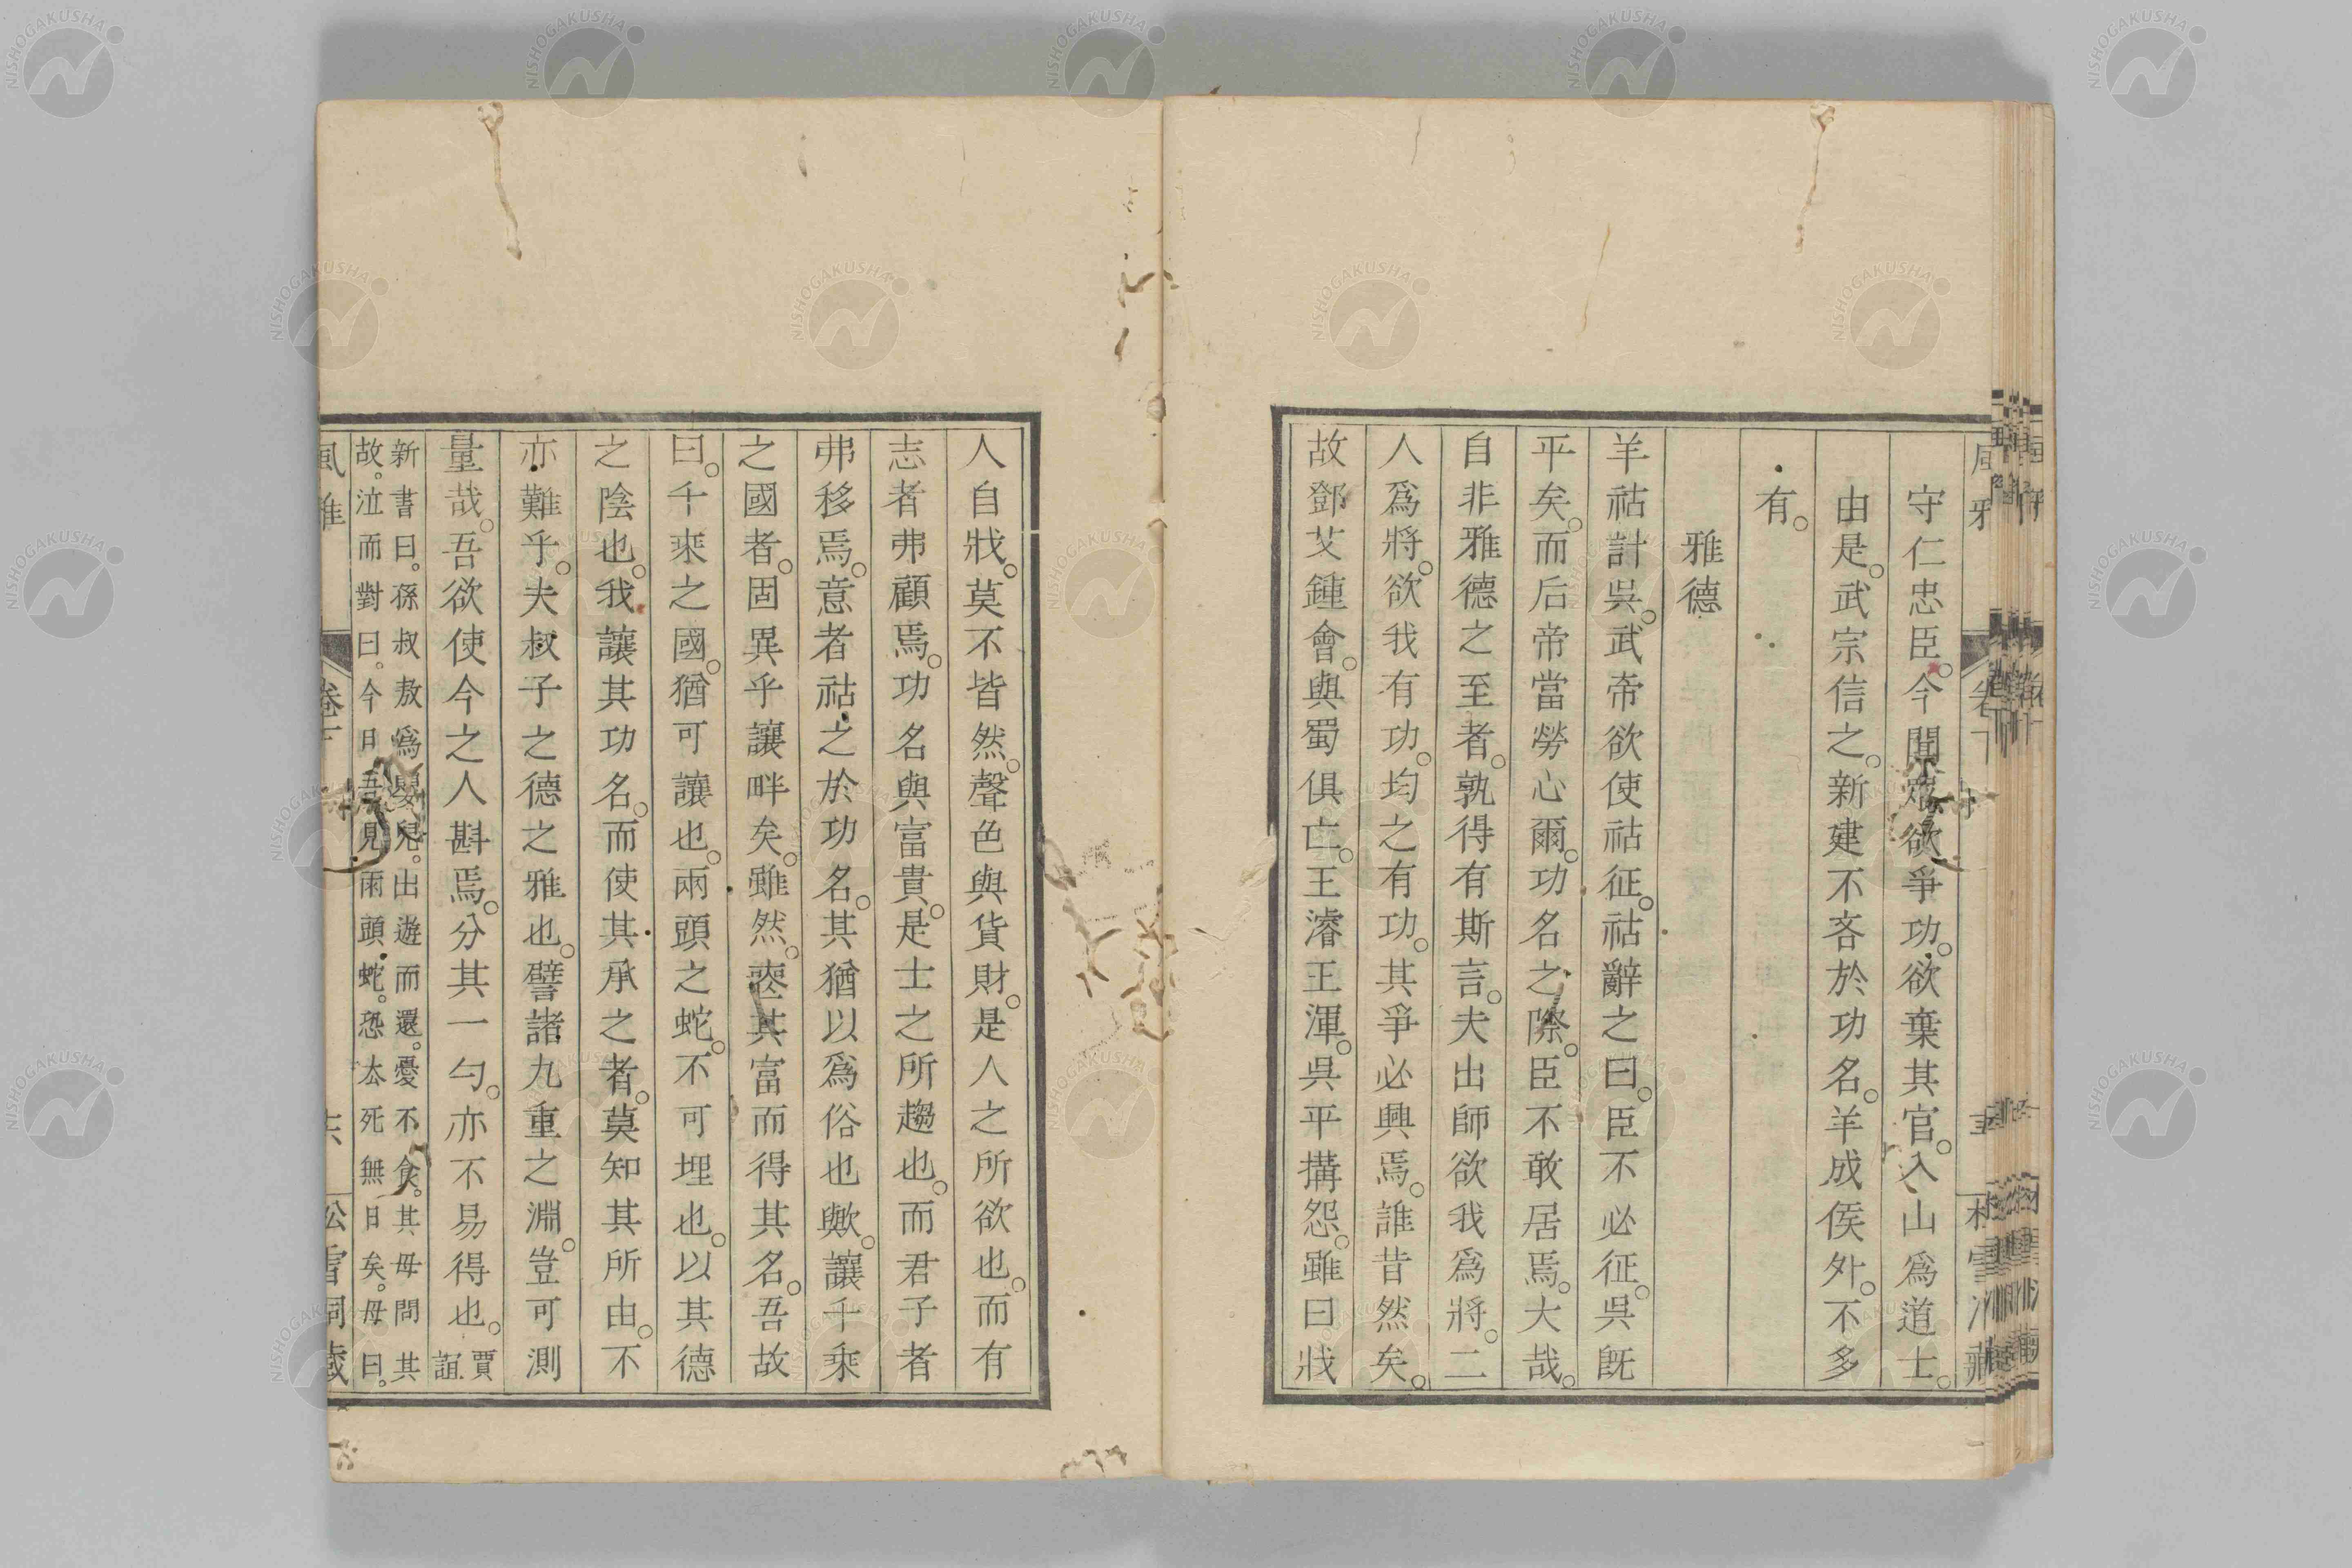 守仁忠臣。今聞衆欲爭功。欲棄其官。入山爲道士。
由是。武宗信之。新建不吝於功名。羊成侯外。不多
有。
雅德
羊祜計吳。武帝欲使祜征。祜辭之曰。臣不必征。吳既
平矣。而后帝當勞心爾。功名之際。臣不敢居焉。大哉。
自非雅德之至者。孰得有斯言。夫出師欲我爲將。二
人爲將。欲我有功。均之有功。其爭必興焉。誰昔然矣。
故鄧艾鍾會。與蜀俱亡。王濬王渾。吳平搆怨。雖曰戕
人自戕。莫不皆然。聲色與貨財。是人之所欲也。而有
志者弗顧焉。功名與富貴。是士之所趨也。而君子者
弗移焉。意者祜之於功名。其猶以爲俗也歟。讓千乘
之國者。固異乎讓畔矣。雖然。喪其富而得其名。吾故
曰。千乘之國。猶可讓也。兩頭之蛇。不可埋也。以其德
之陰也。我讓其功名。而使其承之者。莫知其所由。不
亦難乎。夫叔子之德之雅也。譬諸九重之淵。豈可測
量哉。吾欲使今之人斟焉。分其一勺。亦不易得也。賈誼
新書曰。孫叔敖爲嬰兒。出遊而還。憂不食。其母問其
故。泣而對曰。今日吾見兩頭蛇。恐去死無日矣。母曰。